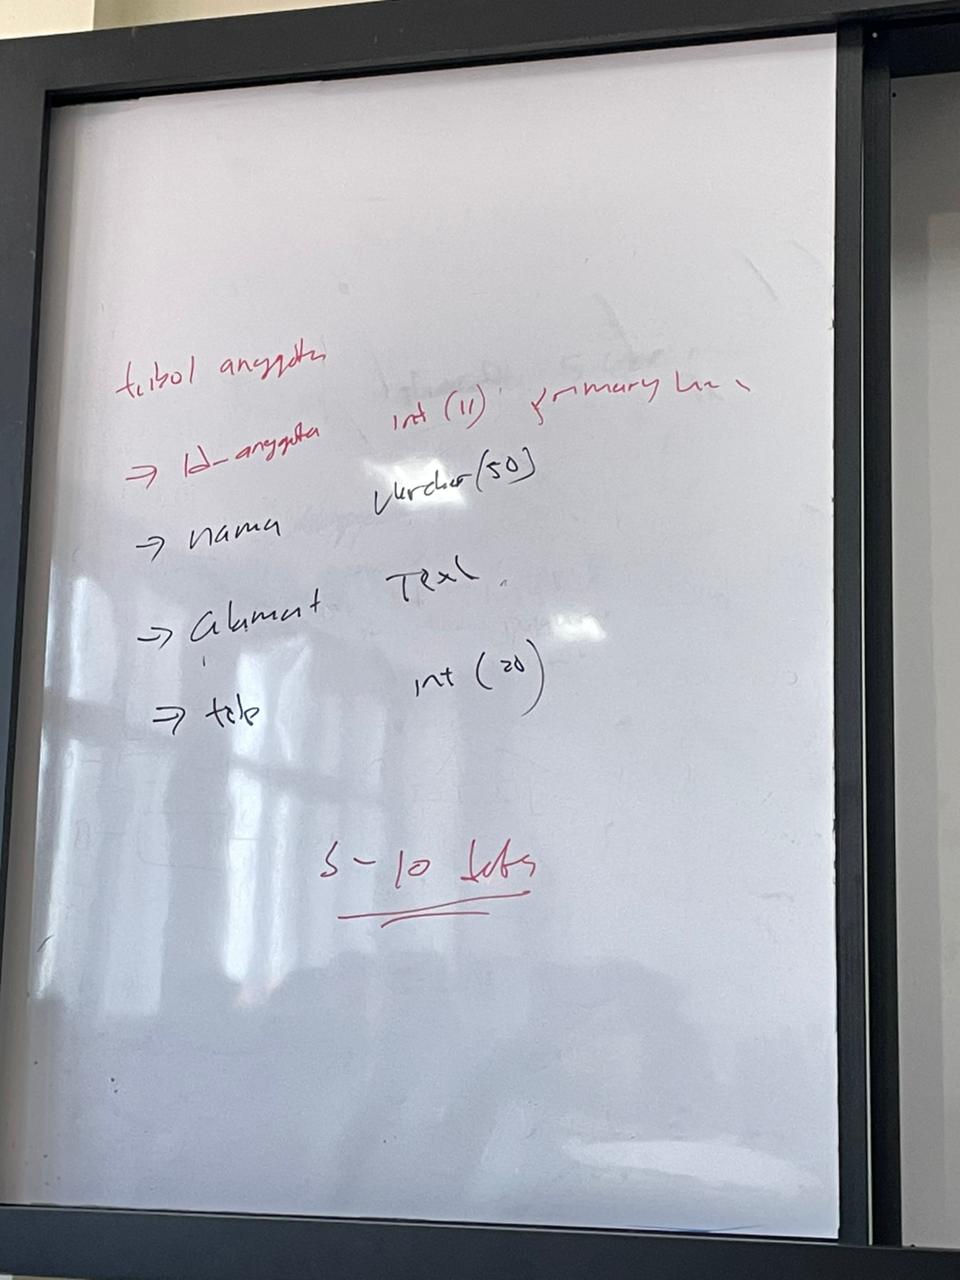 tabel anggota
⇒ Id_anggota int (11) primary key
→ nama Varchar (50)
⇒ alamat Text
⇒ telp int (20)
5 - 10 data